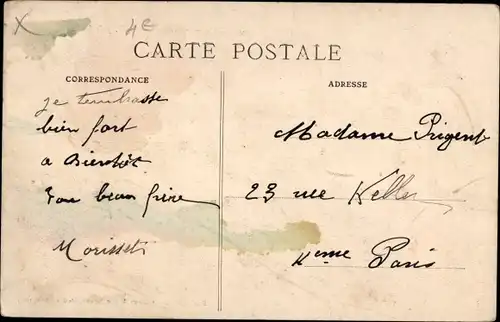 X
4e
CARTE POSTALE
CORRESPONDANCE
je tembrasse
bien fort
a Bientôt
Ton beau frère
Morisset
ADRESSE
Madame Prigent
23 rue Keller
Paris